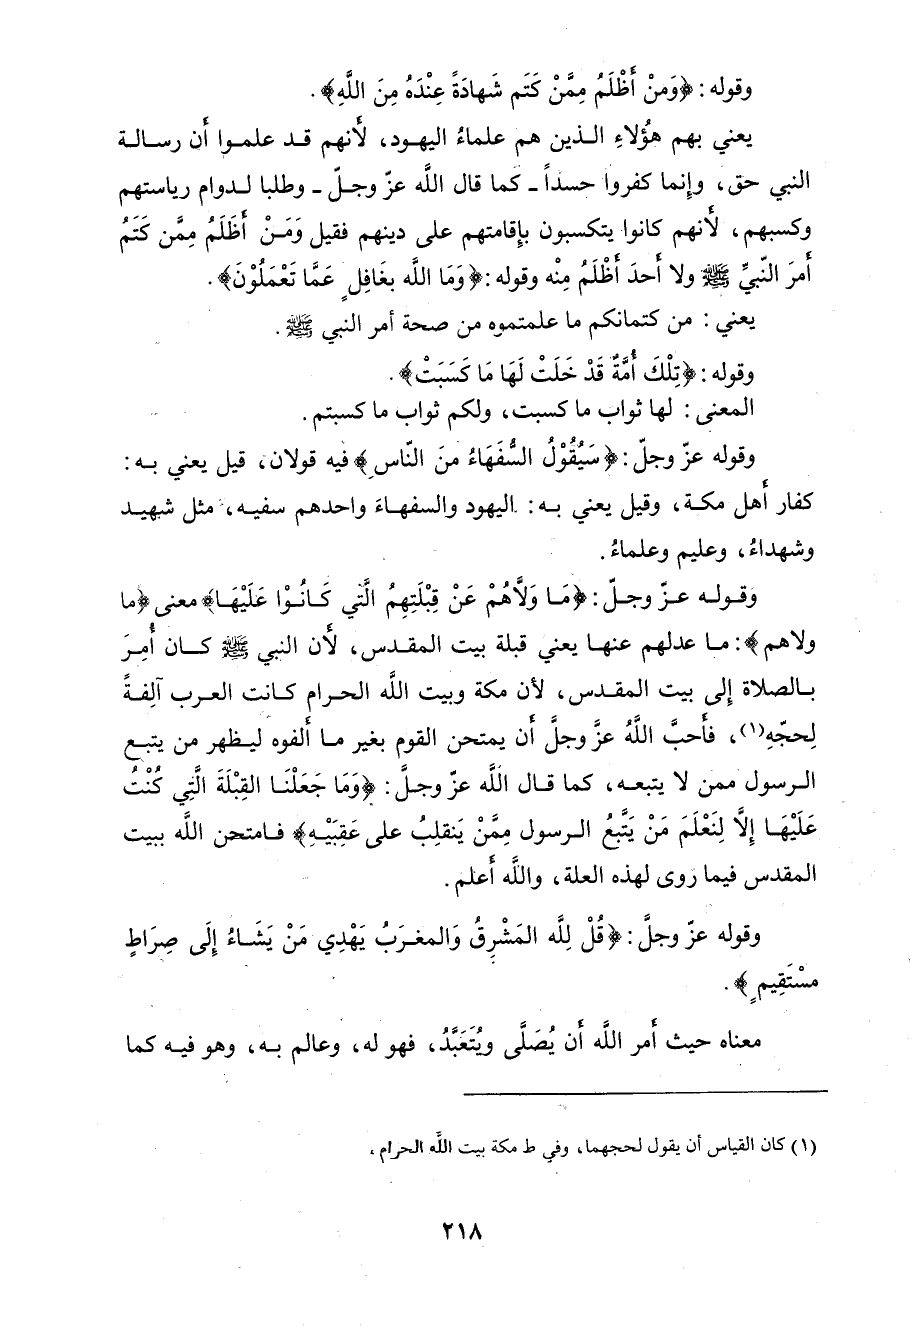 وقوله : ﴿وَمَنْ أَظْلَمُ مِمَّنْ كَتَم شَهادَةً عِنْدَهُ مِنَ اللَّهِ﴾ .
يعني بهم هؤُلاءِ الـذين هم علماءُ اليهـود، لأنهم قـد علمـوا أن رسـالـة
النبي حق، وإنما كفروا حسداً ـ كما قال اللَّه عزّ وجـلّ ـ وطلبا لـدوام رياستهم
وكسبهم، لأنهم كانوا يتكسبون بإقامتهم على دينهم فقيل وَمَـنْ أظَلَمُ مِمَّن كَتَمُ
أمرَ النّبيِّ ﷺ ولا أحدَ أظْلَمُ مِنْه وقوله : ﴿وَمَا اللَّه بِغَافِلٍ عَمَّا تَعْمَلُوْنَ﴾ .
يعني : من كتمانكم ما علمتموه من صحة أمر النبي ﷺ .
وقوله : ﴿تِلْكَ أُمَّةٌ قَدْ خَلَتْ لَهَا مَا كَسَبَتْ﴾ .
المعنى : لها ثواب ما كسبت، ولكم ثواب ما كسبتم .
وقوله عزّ وجلّ : ﴿سَيُقُوْلُ السُّفَهَاءُ منَ النّاسِ﴾ فيه قولان، قيل يعني بـه :
كفار أهل مكـة، وقيل يعني بـه : اليهود والسفهـاءَ واحدهم سفيـه، مثل شهيـد
وشهداءُ، وعليم وعلماءُ .
وقـولـه عـزّ وجـلّ : ﴿مَـا وَلاَّهُمْ عَنْ قِبْلَتِهِمُ الَّتِي كَـانُـوْا عَلَيْهَـا﴾ معنى ﴿ما
ولاهم﴾ : مـا عدلهم عنهـا يعني قبلة بيت المقـدس، لأن النبي ﷺ كـان أُمِـرَ
بـالصلاة إلى بيت المقـدس، لأن مكة وبيت اللَّه الحرام كـانت العـرب آلِفـةً
لِحجّهِ(١)، فأَحبَّ اللَّهُ عزَّ وجلَّ أن يمتحن القوم بغير مـا ألفوه ليظهر من يتبـع
الـرسول ممن لا يتبعـه، كمـا قـال اللَّه عزّ وجـلَّ : ﴿وَمَا جَعَلْنَـا القِبْلَةَ الَّتِي كُنْتُ
عَلَيْهَـا إِلَّا لِنَعْلَمَ مَنْ يَتَّبِعُ الـرسول مِمَّنْ يَنقلِبُ على عَقِبَيْـهِ﴾ فـامتحن اللَّه ببيت
المقدس فيما روى لهذه العلة، واللَّه أعلم .
وقوله عزّ وجلَّ : ﴿قُلْ لِلَّه المَشْرِقُ وَالمغـرَبُ يَهْدِي مَنْ يَشَـاءُ إلَى صِرَاطٍ
مسْتَقِيمٍ﴾ .
معناه حيث أمر اللَّه أن يُصَلَّى ويُتَعَبَّدُ، فهو له، وعالم بـه، وهو فيـه كما
(١) كان القياس أن يقول لحجهما، وفي ط مكة بيت اللَّه الحرام،
٢١٨